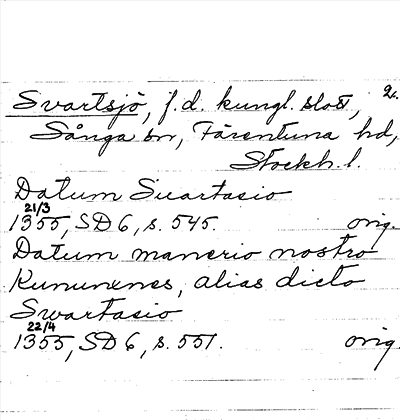 Svartsjö, f.d. kungl. slott, 2.
Sånga sn, Färentuna hd,
Stockh. l.
Datum Suartasio
21/3
1355, SD 6, s. 545. orig.
Datum manerio nostro
Kununenes, alias dicto
Swartasio
22/4
1355, SD 6, s. 551. orig.